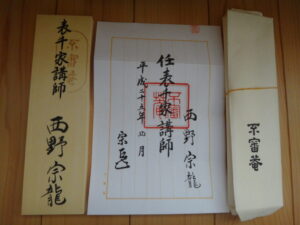 不審菴
西野宗龍
任表千家講師
平成二十五年 月
宗
表千家講師
西野宗龍